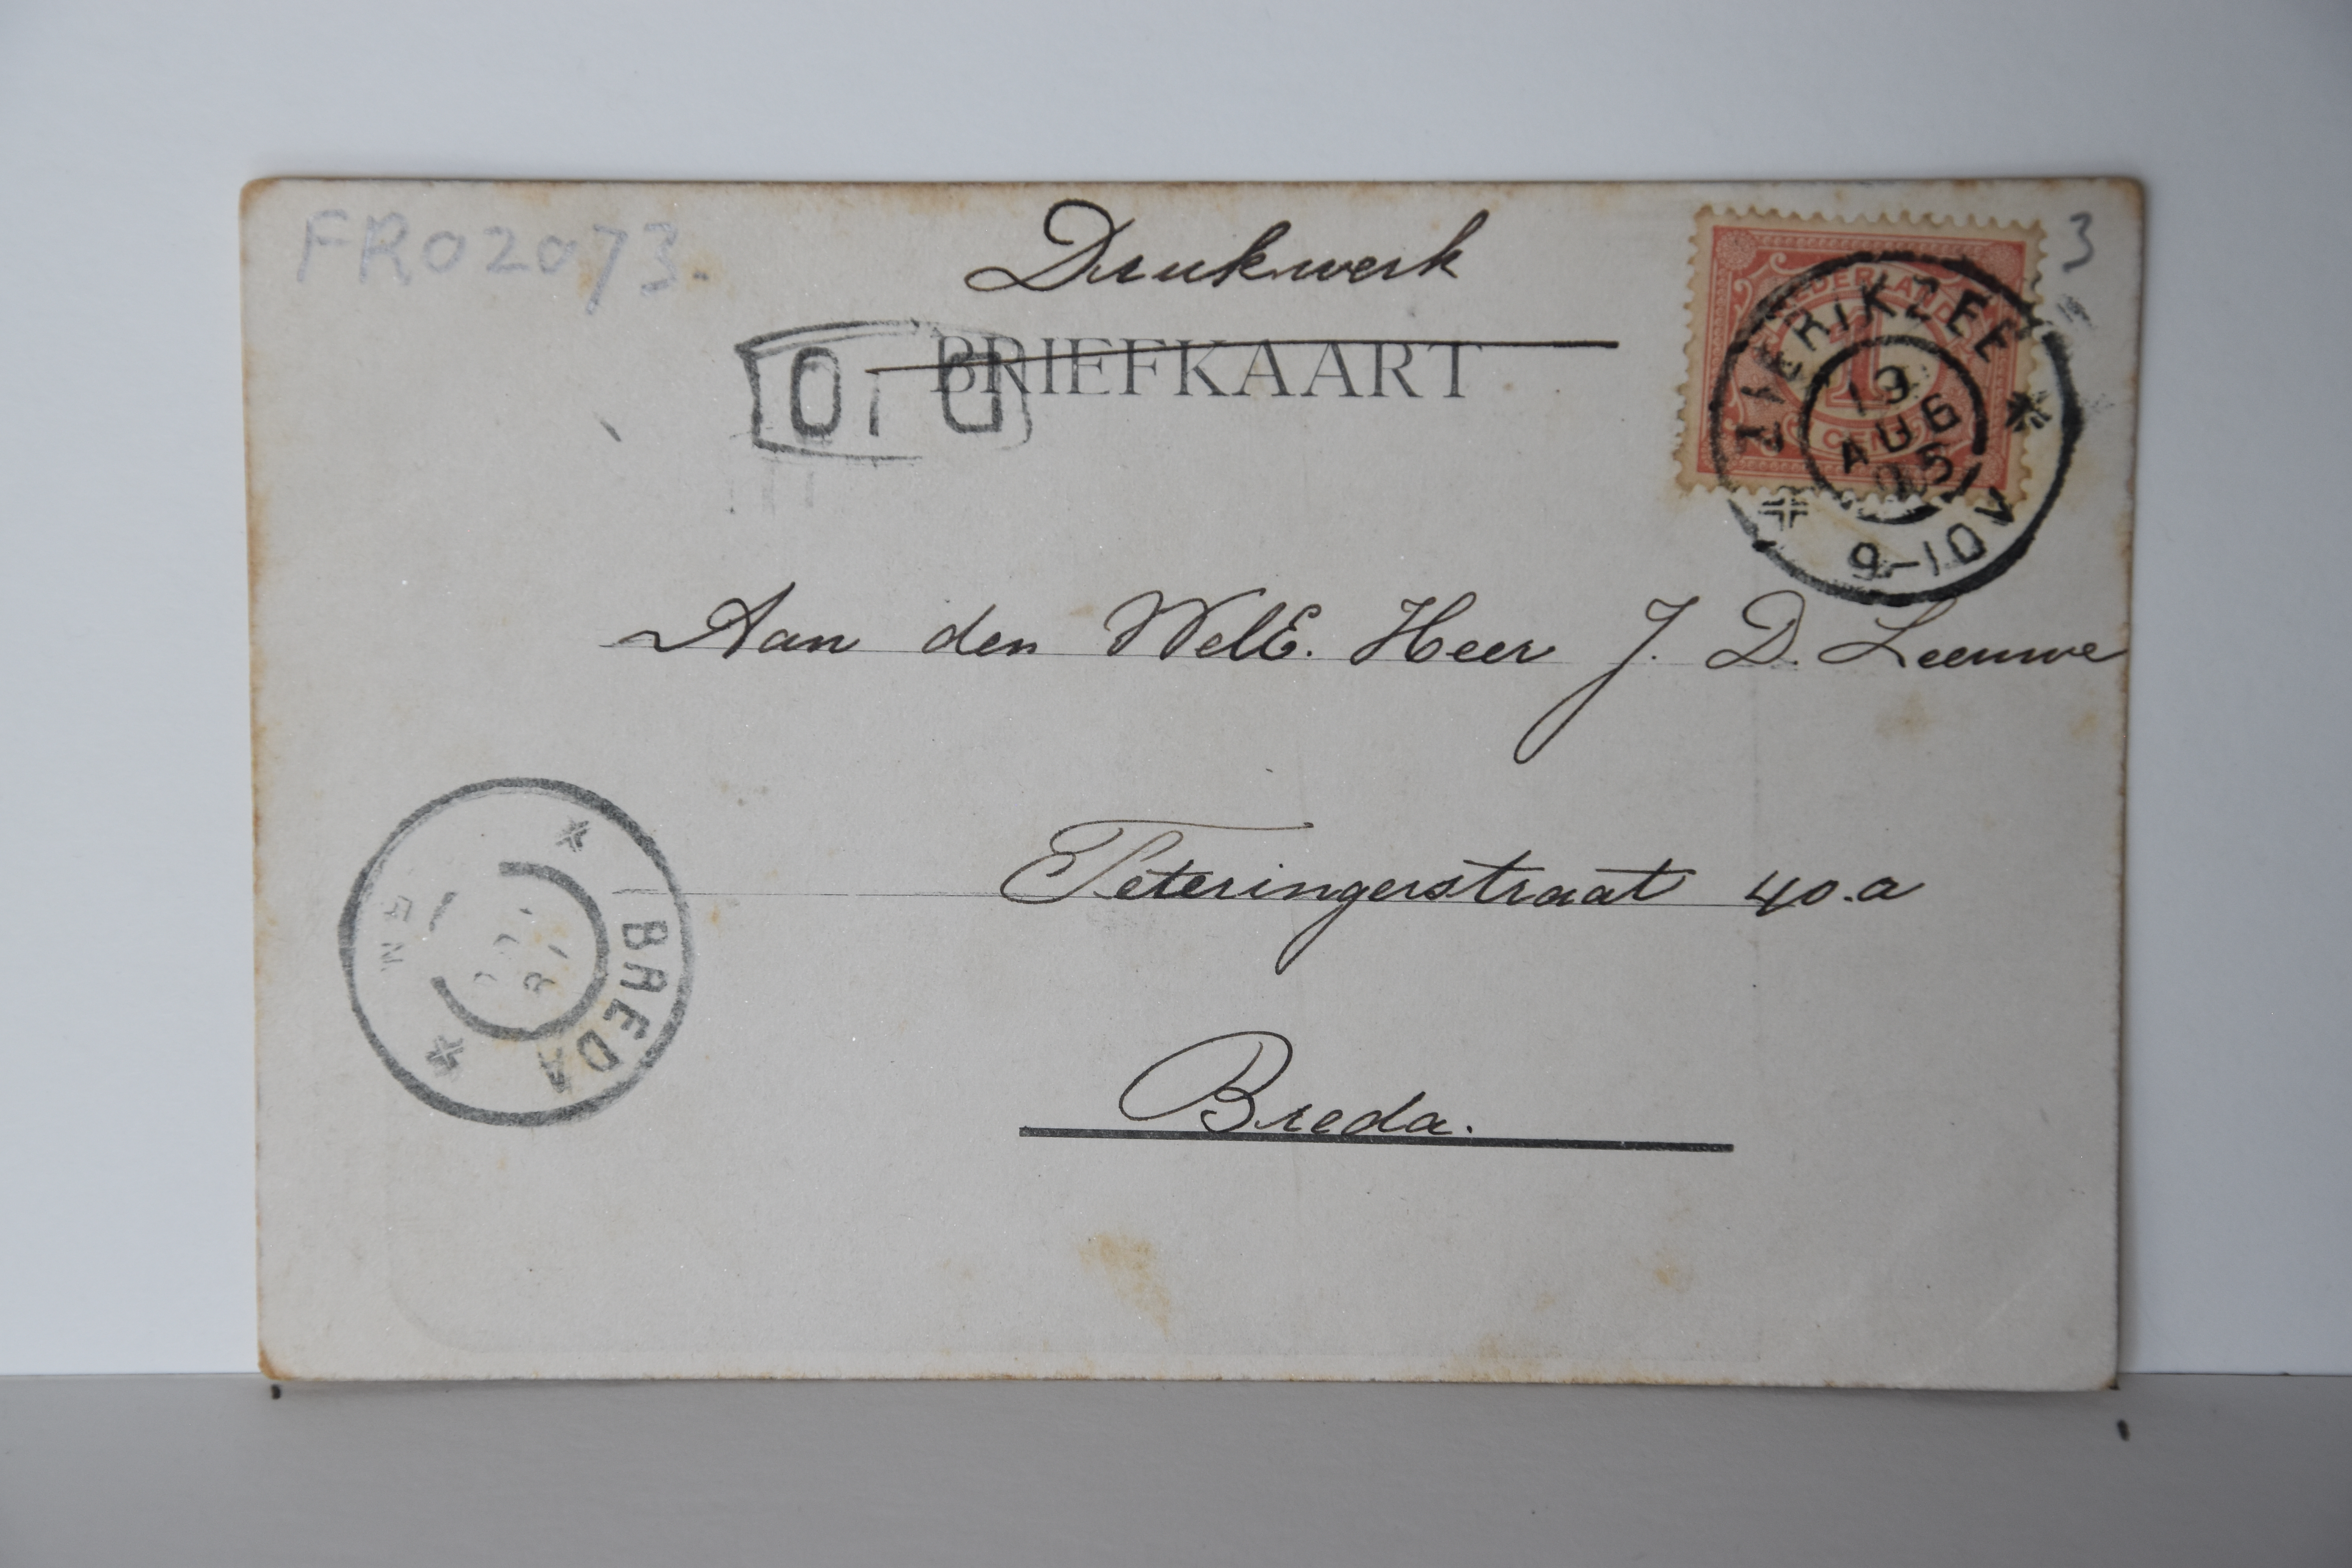 FR02073.
3
Drukwerk
BRIEFKAART
NEDERLAND
1
CENT
ZIERIKZEE
13
AUG
05
9-10V
Aan den WelE. Heer J. D. Leeuwe
Teteringerstraat 40.a
Breda.
BREDA